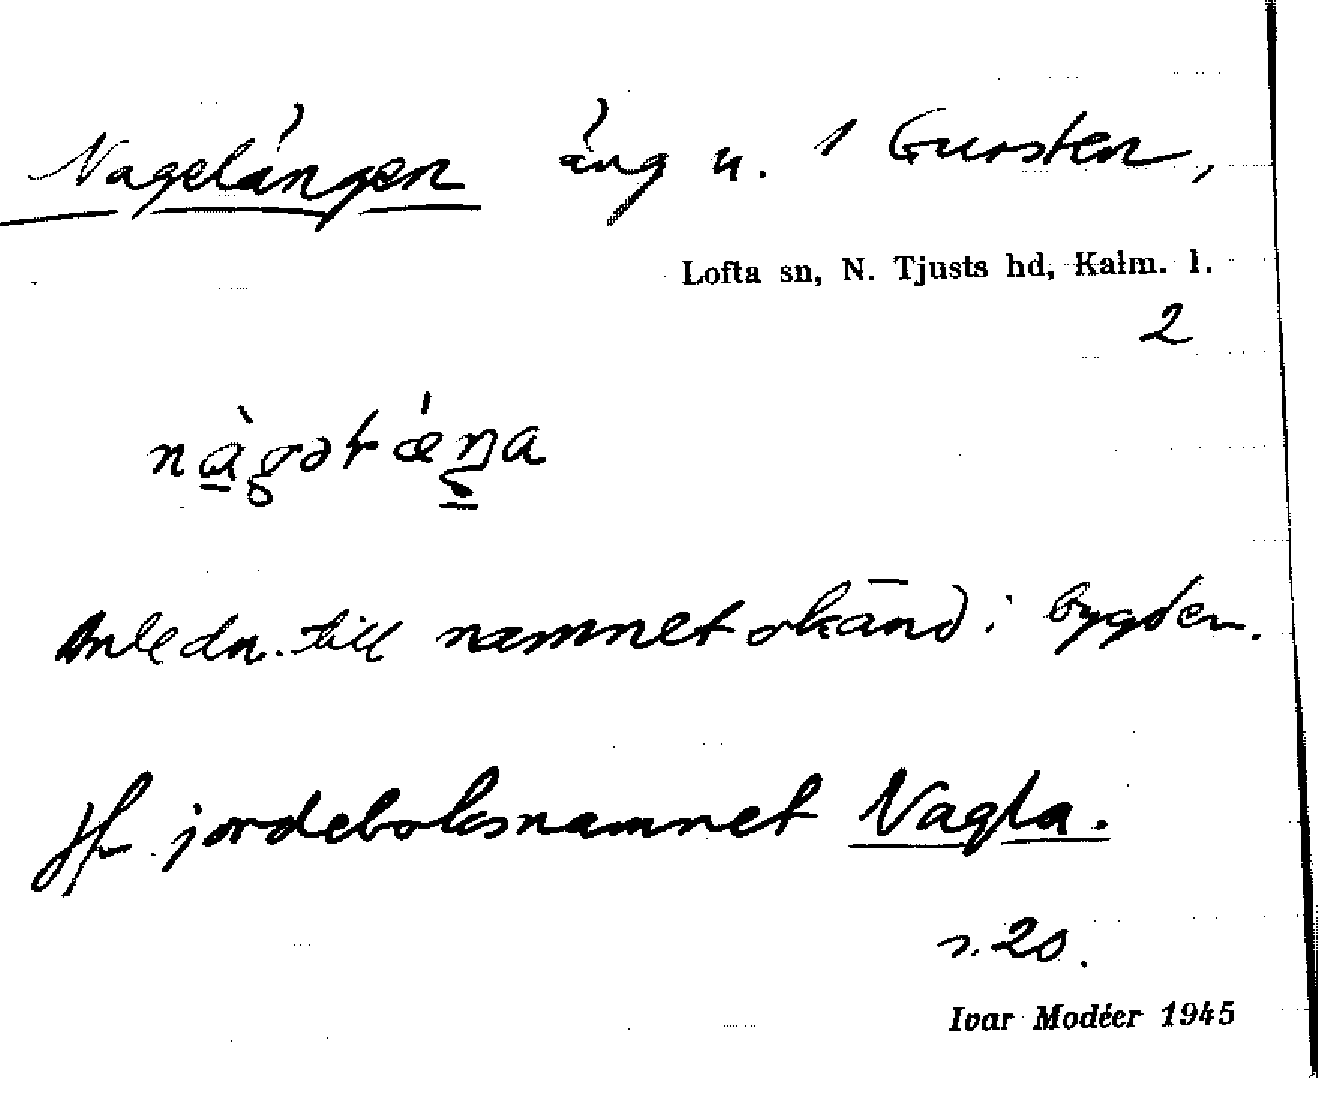 Nagelängen äng u. 1 Gursten,
Lofta sn, N. Tjusts hd, Kalm. l.
2
Anledn. till namnet okänd i bygden.
Jfr jordeboksnamnet Nagla.
s. 20.
Ivar Modéer 1945